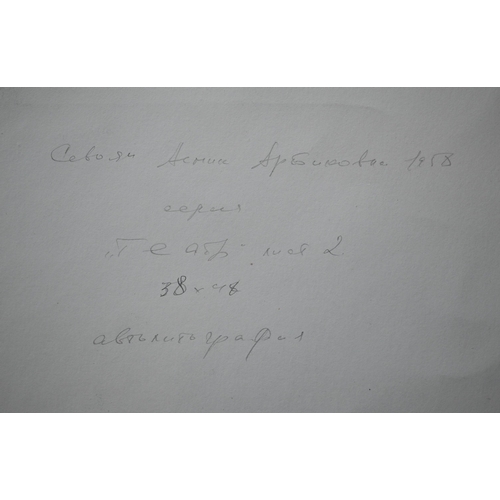 Севоян Асмик Арбиковна 1958
серия
„Театр" лист 2.
38 х 48
автолитография